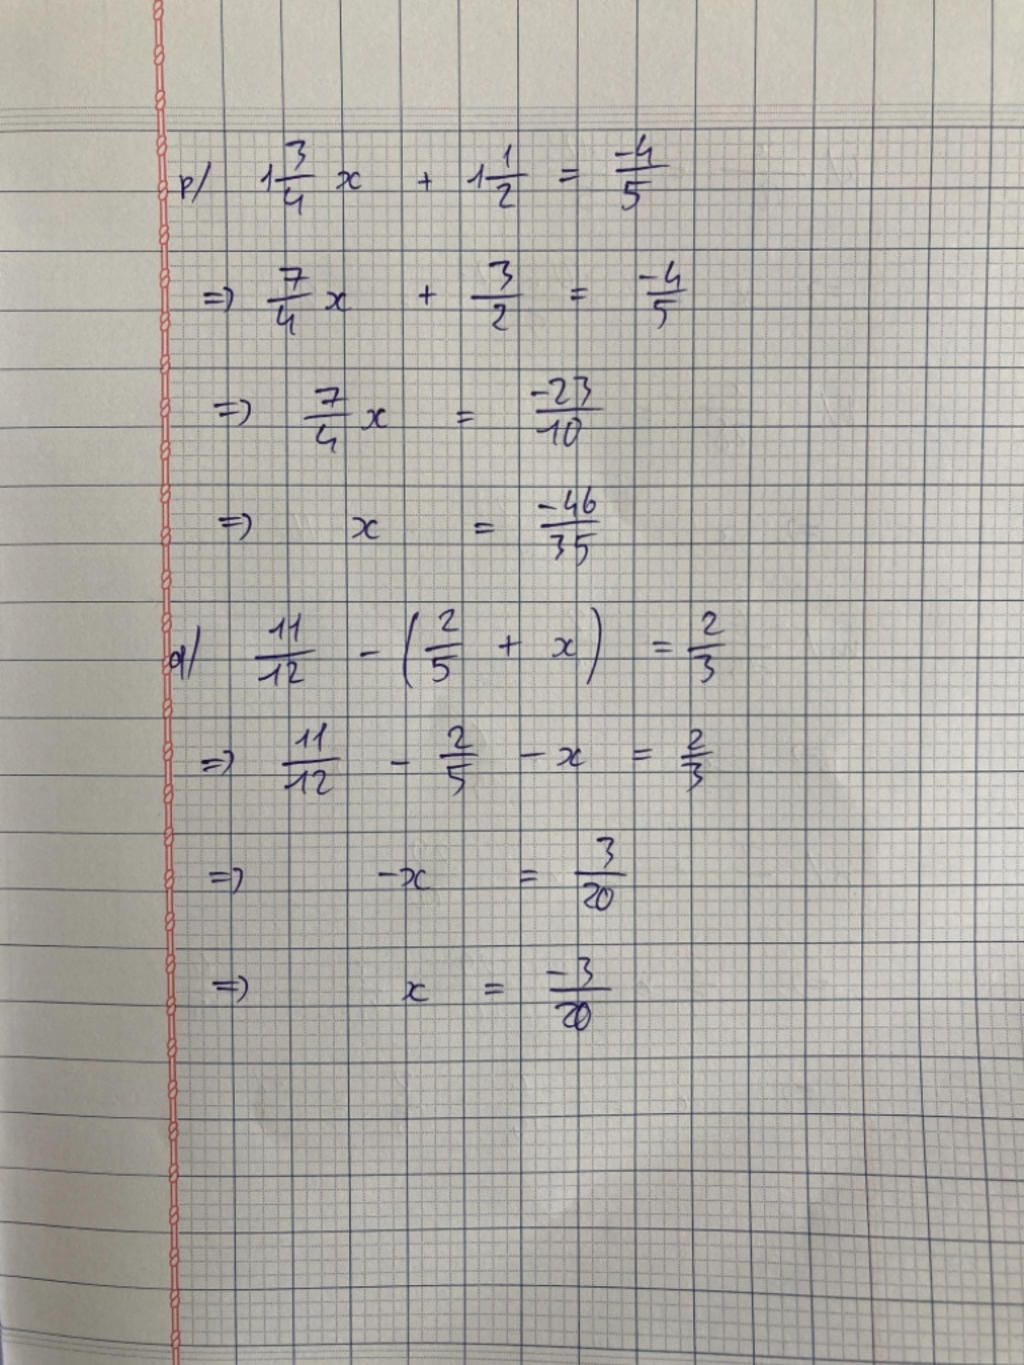 p/ 1 3/4 x + 1 1/2 = -4/5
=> 7/4 x + 3/2 = -4/5
=> 7/4 x = -23/10
=> x = -46/35
q/ 11/12 - (2/5 + x) = 2/3
=> 11/12 - 2/5 - x = 2/3
=> -x = 3/20
=> x = -3/20